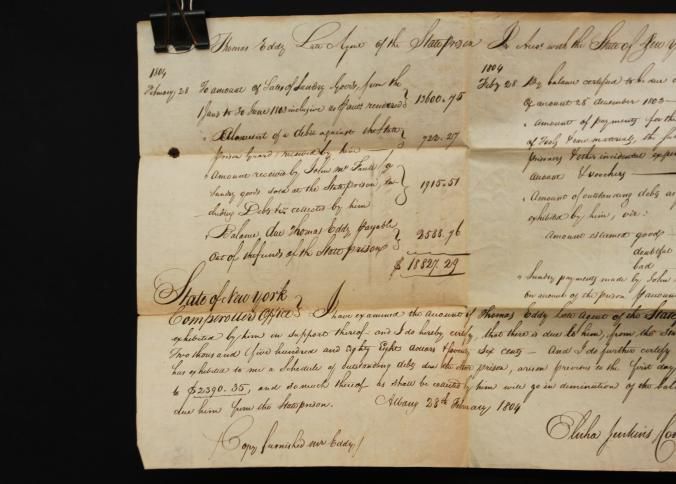 Thomas Eddy Late Agent of the State prison In Acct. with the State of New Y
1804
February 28 To amount of Sales of Sundry Goods, from the
1 Jany to 30 June 1803 inclusive as pr acct rendered } 13600.75
Amount of a debt against the State
prison Guard received by him } 722.27
Amount received by John Mc
Sundry goods sold at the State prison, in-
cluding Debts &c collected by him } 1915.51
Balance due Thomas Eddy payable
Out of the funds of the State prison } 2588.76
$ 18827.29
1804
Feby 28 By balance certified to be due
of account 28 december 1803
Amount of payments for the
of Tools & raw materials, the
& other incidental expen
account & vouchers
Amount of outstanding debts as
exhibited by him, viz:
Amount esteemed good
doubtful
bad
Sundry payments made by John
on account of the prison
State of New York
Comptrollers Office } I have examined the amount of Thomas Eddy Late Agent of the State
exhibited by him in support thereof and I do hereby certify, that there is due to him, from the Stat
Two thousand five hundred and Eighty Eight dollars & seventy Six cents – And I do further certify
has exhibited to me a Schedule of outstanding debts due the State prison, arisen previous to the first day
to $2390.35, and so much thereof as shall be received by him will go in diminution of the bala
due him from the State prison. Albany 28th February 1804
Elisha Jenkins Co
(Copy furnished Mr Eddy)